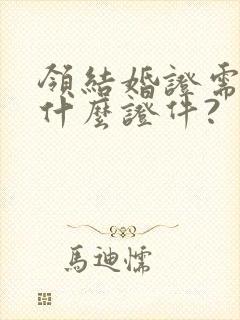 領結婚證需
什麼證件?
馬迪懦